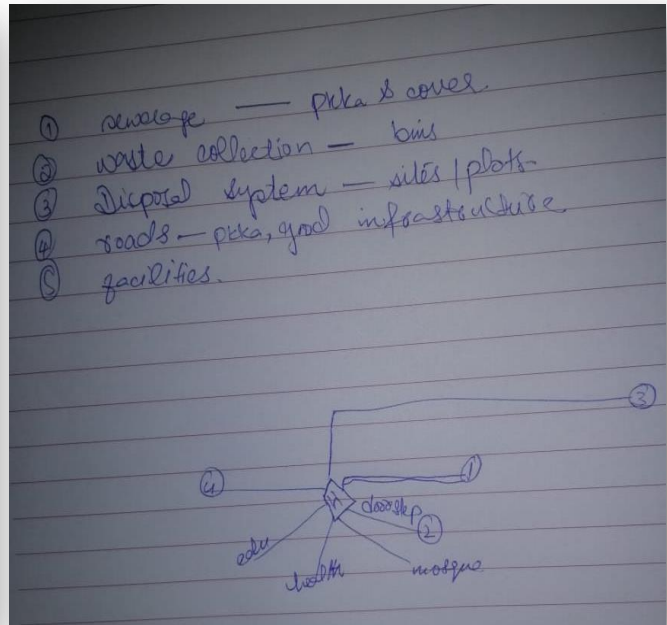 ① sewerage — pkka & cover.
② waste collection — bins
③ Disposal system — sites / plots.
④ roads — pkka, good infrastructure
⑤ facilities.
③
④
①
H
doorstep
②
edu
health
mosque